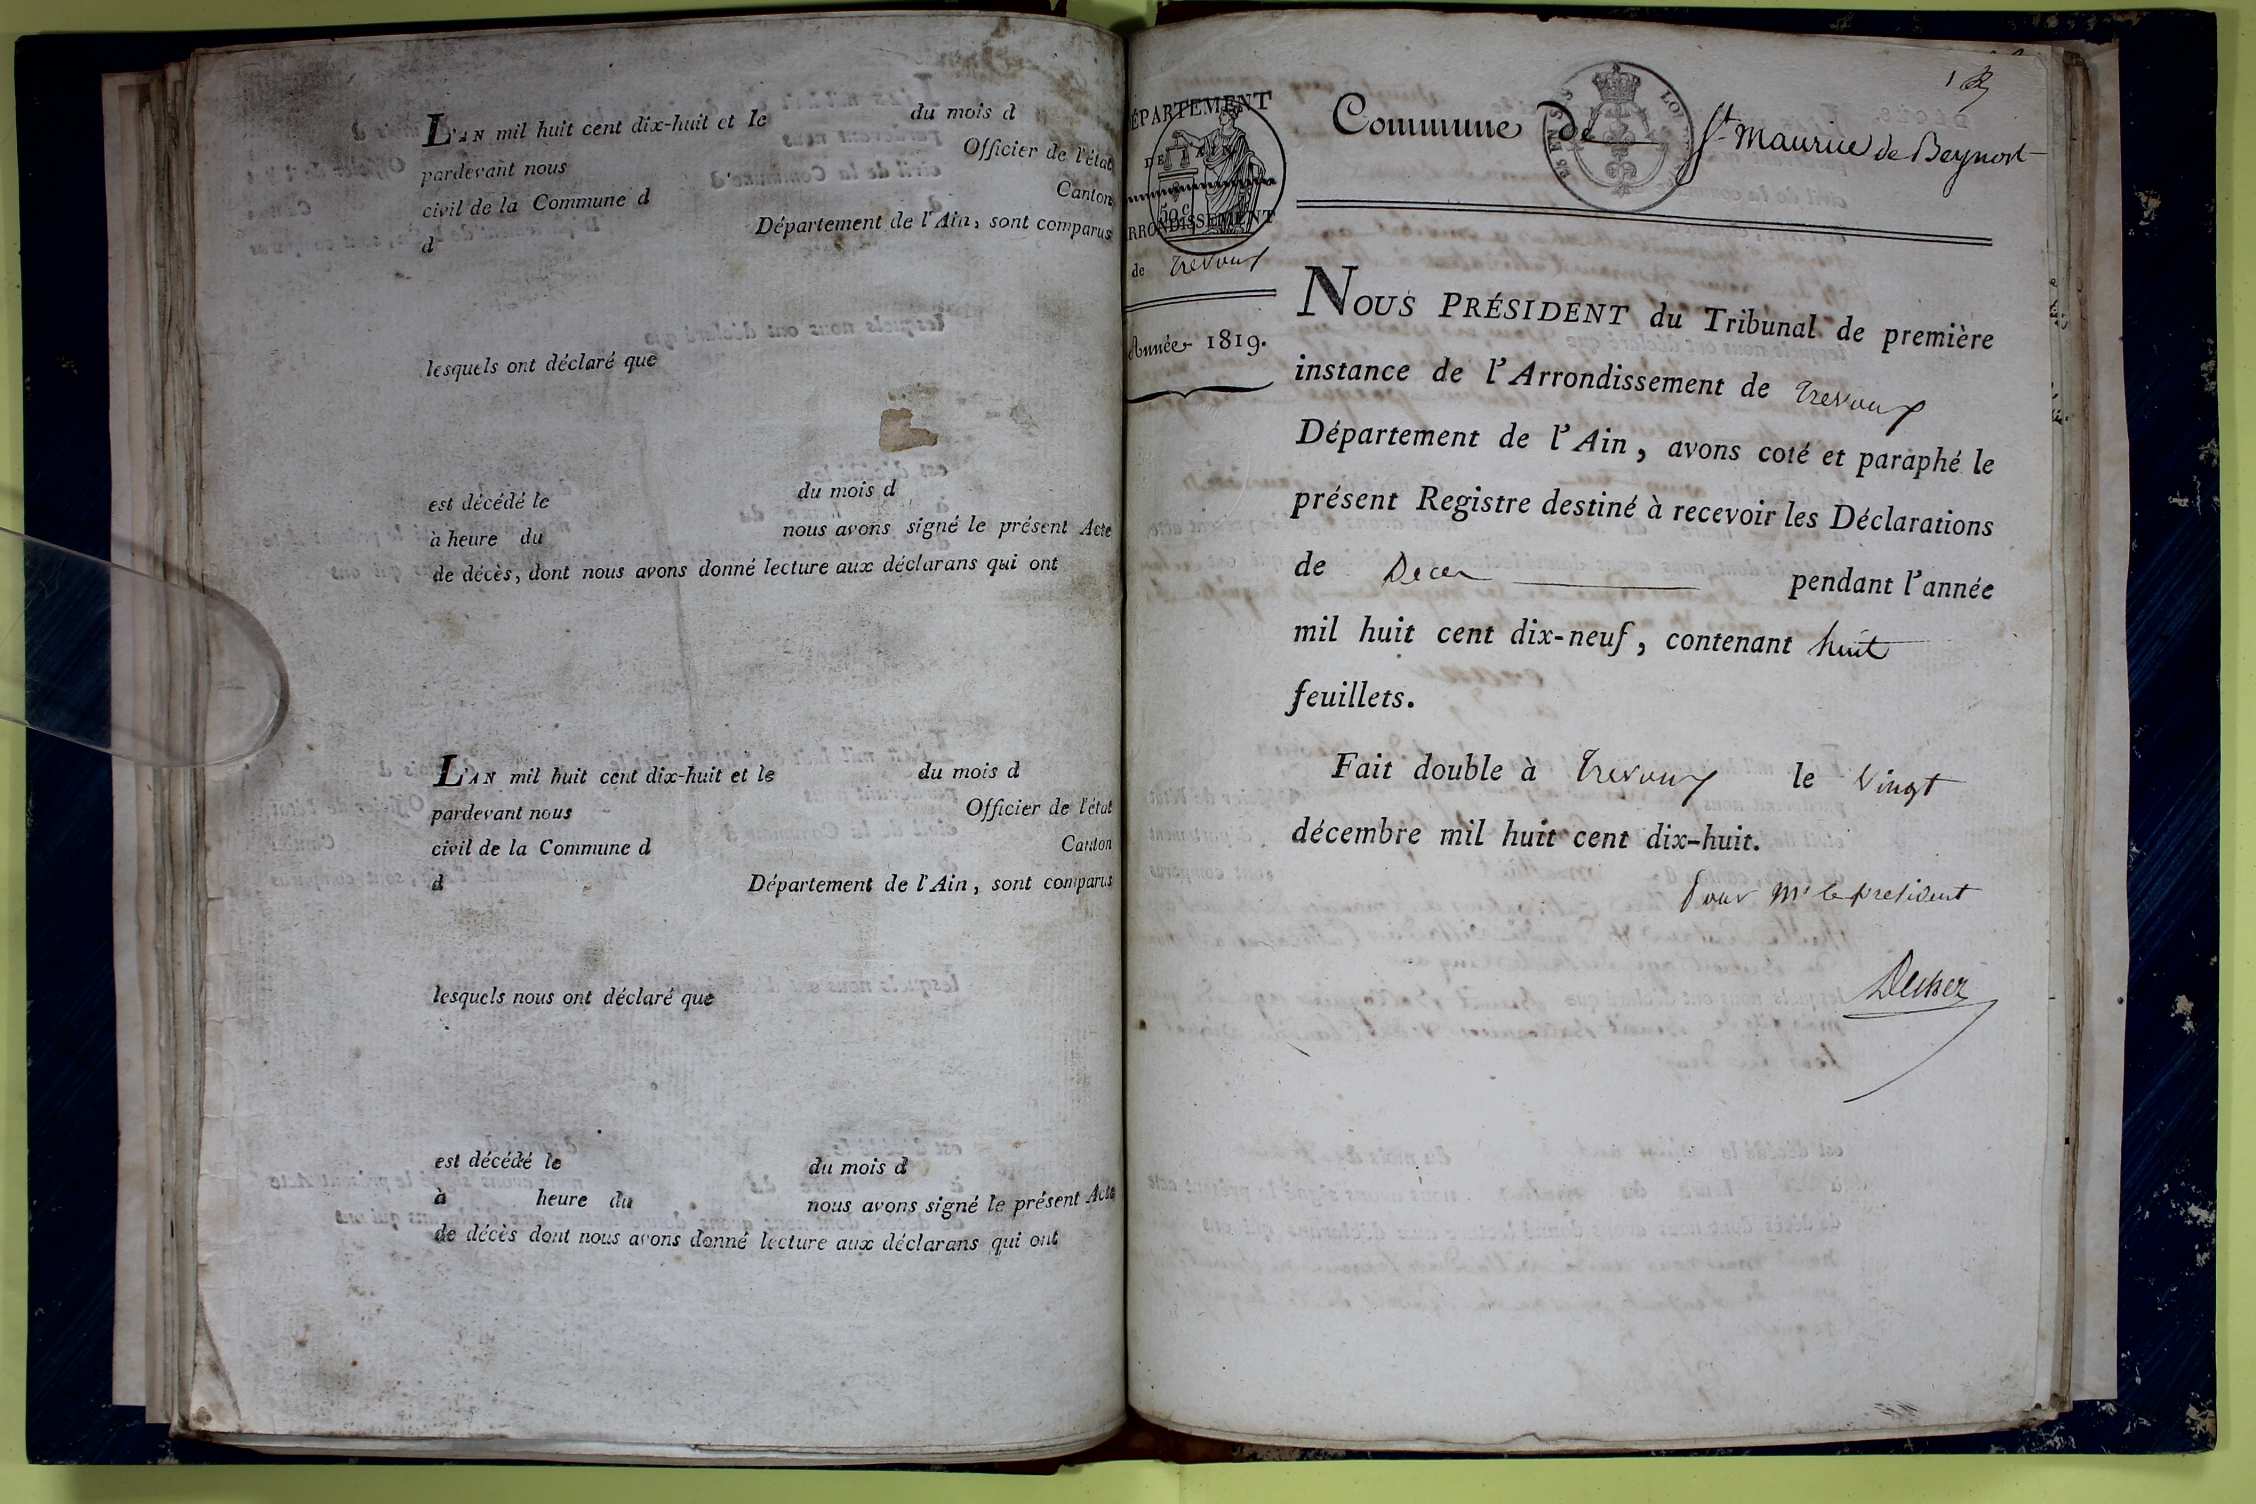 L'AN mil huit cent dix-huit et le du mois d
pardevant nous Officier de l'état
civil de la Commune d Canton
d Département de l'Ain, sont comparus
lesquels ont déclaré que
est décédé le du mois d
à heure du nous avons signé le présent Acte
de décès, dont nous avons donné lecture aux déclarans qui ont
L'AN mil huit cent dix-huit et le du mois d
pardevant nous Officier de l'état
civil de la Commune d Canton
d Département de l'Ain, sont comparus
lesquels nous ont déclaré que
est décédé le du mois d
à heure du nous avons signé le présent Acte
de décès dont nous avons donné lecture aux déclarans qui ont
1
DÉPARTEMENT
DE L'AIN
50 c
ARRONDISSEMENT
de Trevoux
Année 1819.
Commune de St Maurice de Beynost
NOUS PRÉSIDENT du Tribunal de première
instance de l'Arrondissement de Trevoux
Département de l'Ain, avons coté et paraphé le
présent Registre destiné à recevoir les Déclarations
de Deces pendant l'année
mil huit cent dix-neuf, contenant huit
feuillets.
Fait double à Trevoux le vingt
décembre mil huit cent dix-huit.
Pour Mr le president